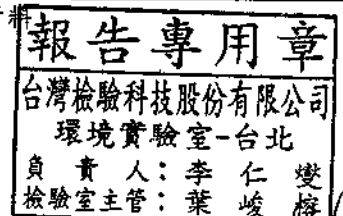 料
報告專用章
台灣檢驗科技股份有限公司
環境實驗室-台北
負責人：李仁燮
檢驗室主管：葉峻榕